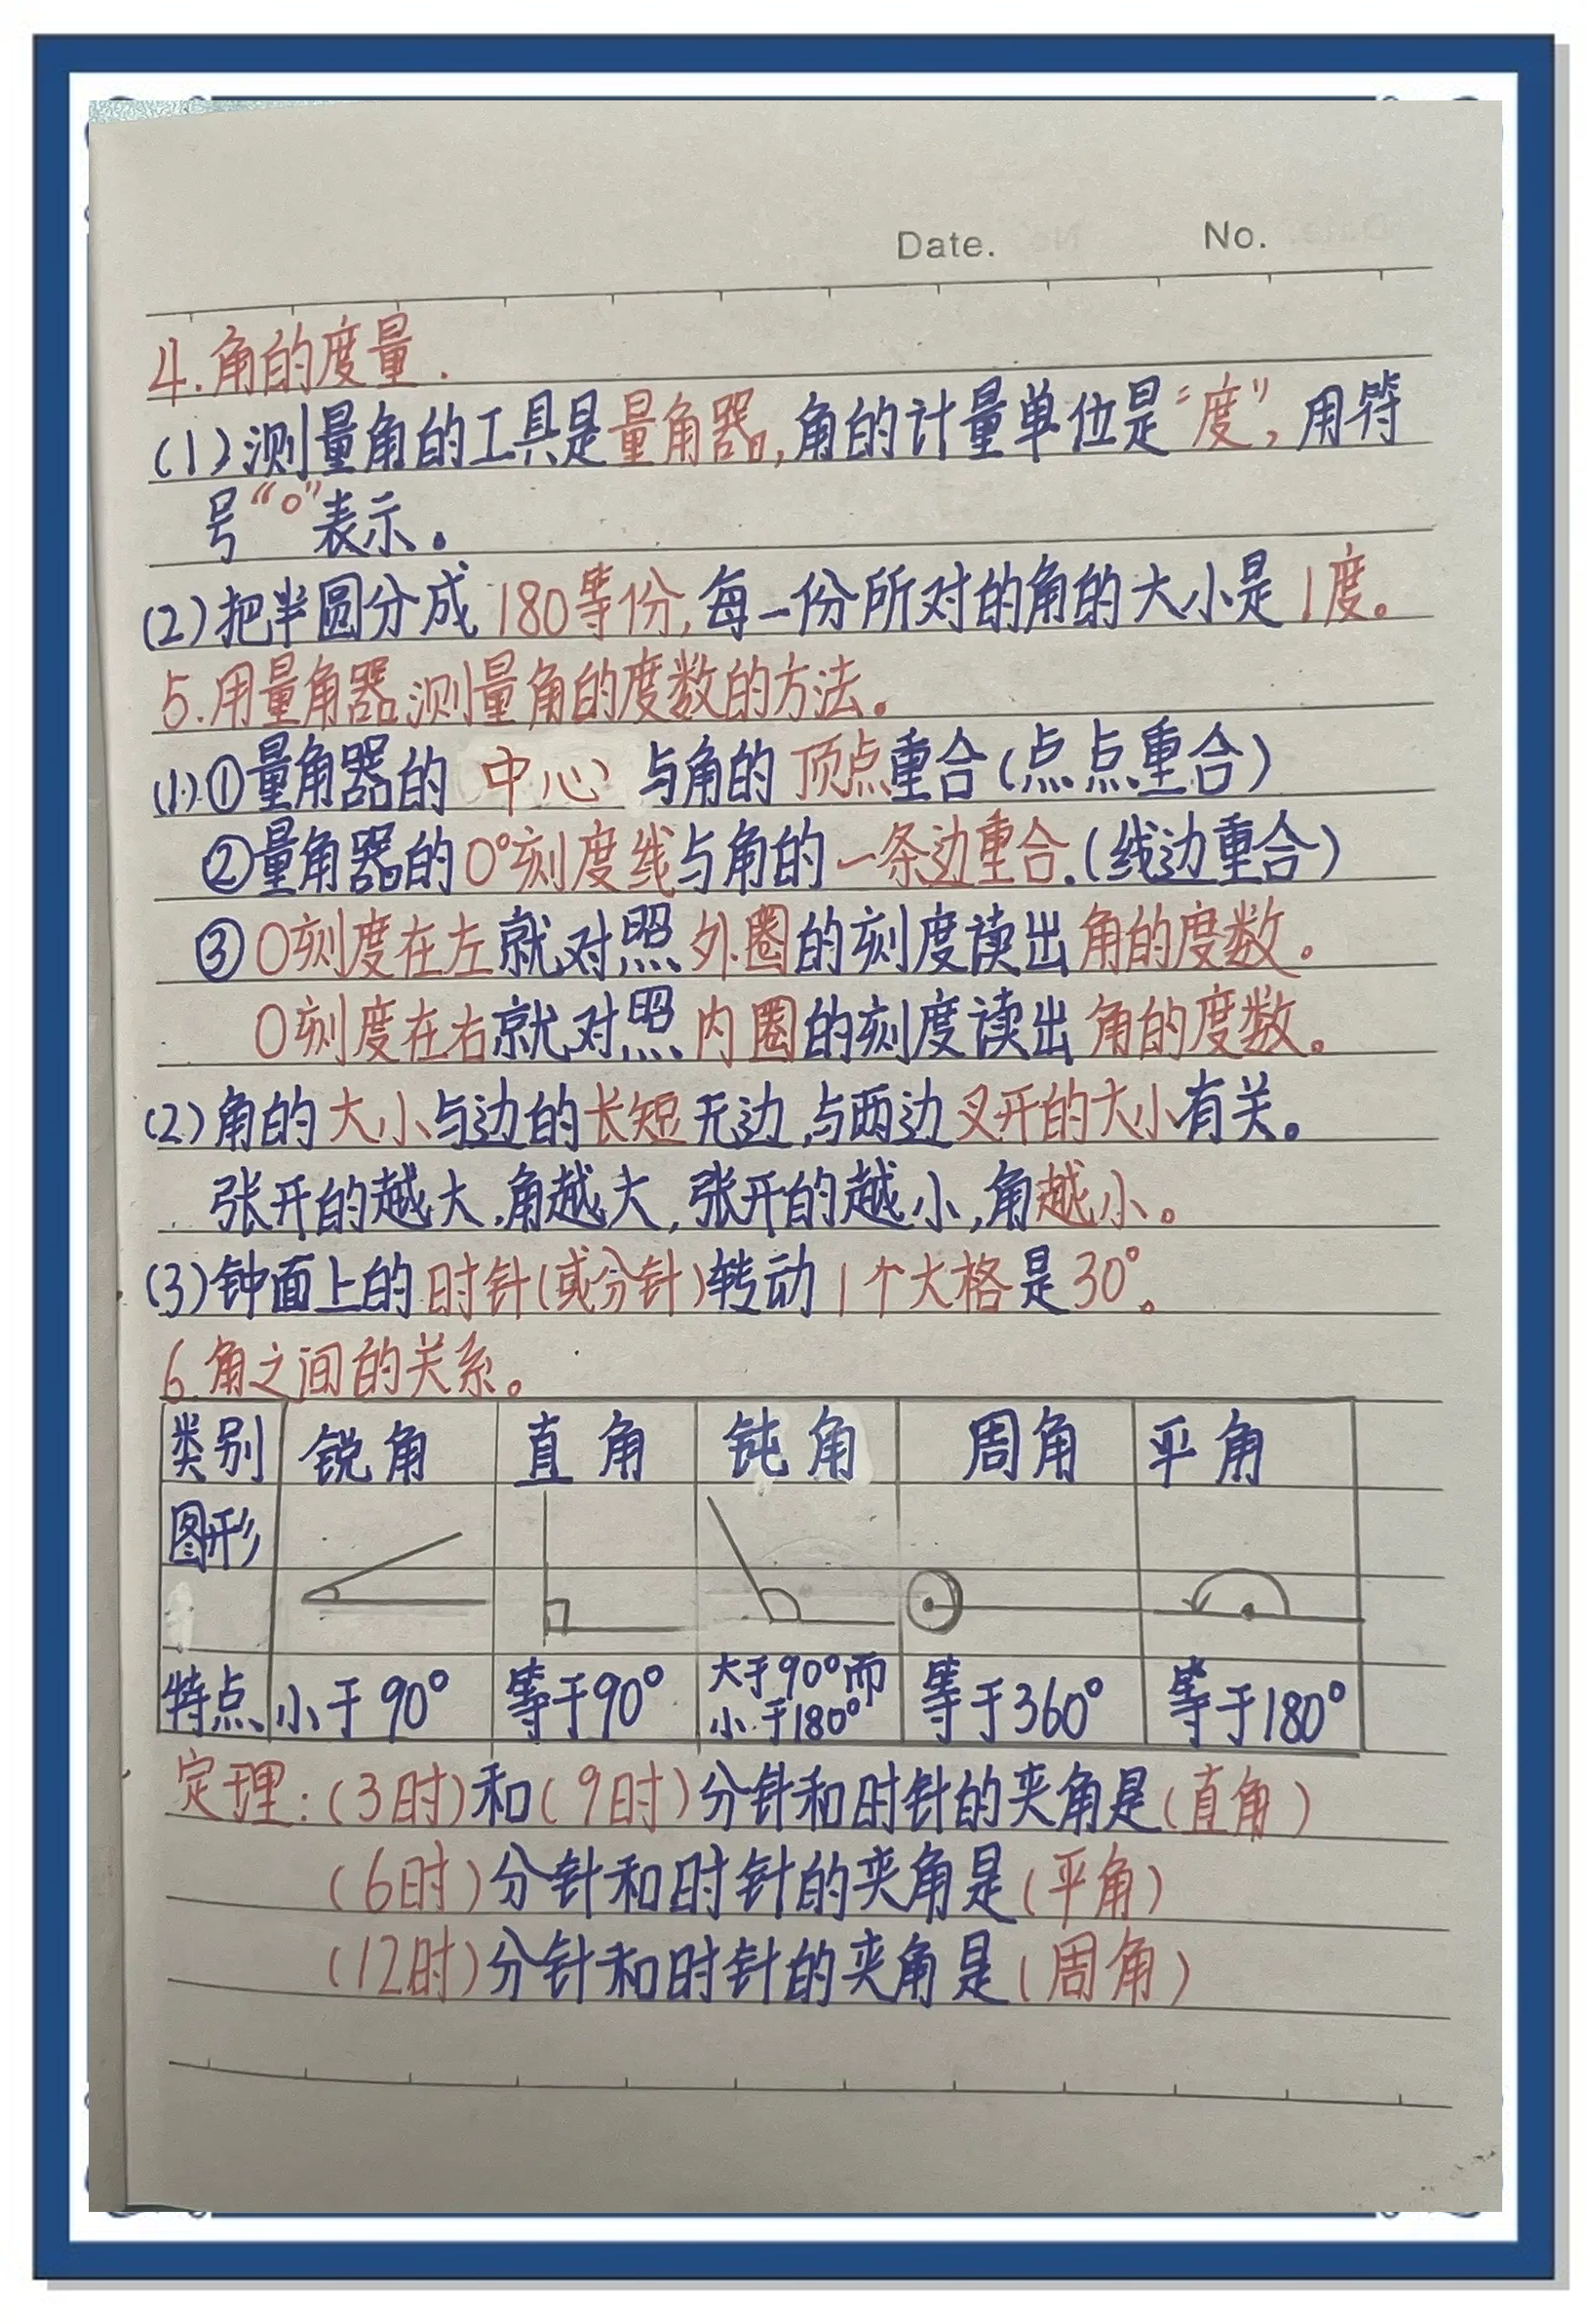 Date. No.
4.角的度量.
(1)测量角的工具是量角器,角的计量单位是“度”,用符
号“°”表示。
(2)把半圆分成180等份,每一份所对的角的大小是1度。
5.用量角器测量角的度数的方法。
(1).①量角器的 中心 与角的顶点重合(点点重合)
②量角器的0°刻度线与角的一条边重合.(线边重合)
③0刻度在左就对照外圈的刻度读出角的度数。
0刻度在右就对照内圈的刻度读出角的度数。
(2)角的大小与边的长短无边,与两边叉开的大小有关。
张开的越大,角越大,张开的越小,角越小。
(3)钟面上的时针(或分针)转动1个大格是30°。
6.角之间的关系。
类别 锐角 直角 钝角 周角 平角
图形
特点 小于90° 等于90° 大于90°而小于180° 等于360° 等于180°
定理:(3时)和(9时)分针和时针的夹角是(直角)
(6时)分针和时针的夹角是(平角)
(12时)分针和时针的夹角是(周角)